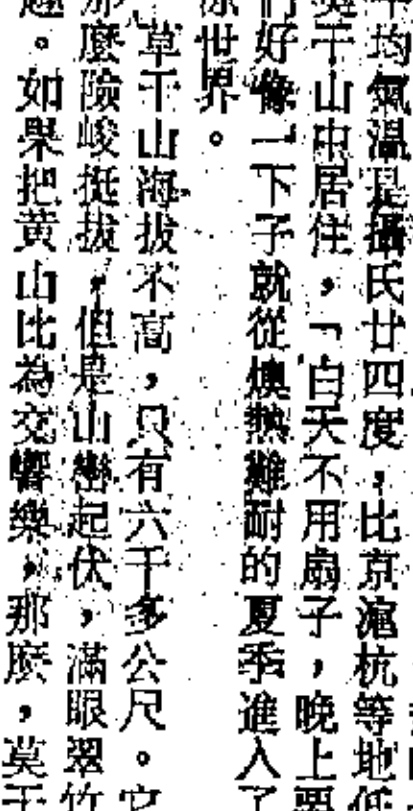 均氣溫是攝氏廿四度，比京滬杭等地低
干山中居住，「白天不用扇子，晚上要
好像一下子就從燠熱難耐的夏季進入了
世界。
草干山海拔不高，只有六千多公尺。它
麼險峻挺拔，但是山巒起伏，滿眼翠竹
。如果把黄山比為交響樂，那麽，莫干